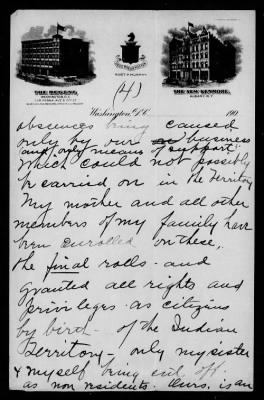 THE REGENT,
WASHINGTON, D.C.
ROBT P. MURPHY.
THE NEW KENMORE,
ALBANY, N.Y.
(4)
Washington, D.C. 190
absences being caused
only by our business
"and only means of support"
which could not possibly
be carried on in the Territory
My mother and all other
members of my family have
been enrolled on these,
the final rolls - and
granted all rights and
privileges - as citizens
by bird - of the Indian
Territory - only my sister
& myself being cut off
as non residents. Ours. is an